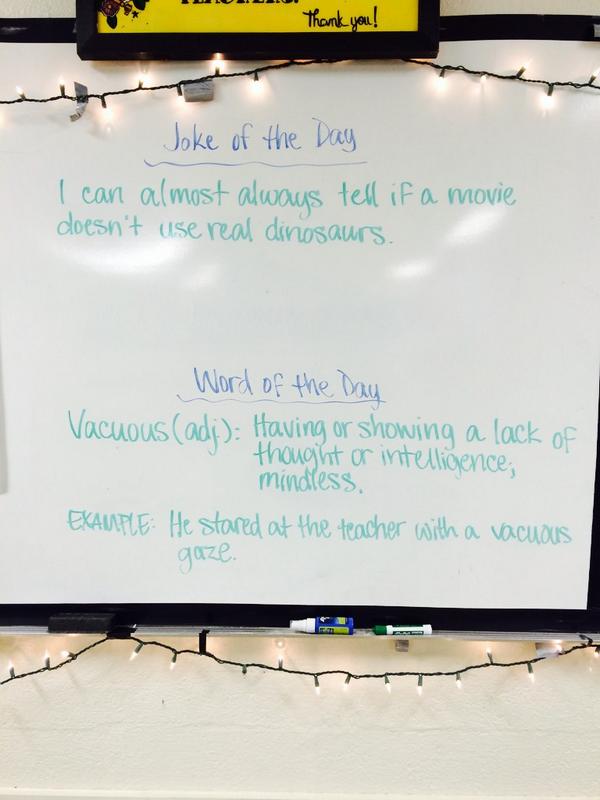 Thank you!
Joke of the Day
I can almost always tell if a movie
doesn't use real dinosaurs.
Word of the Day
Vacuous (adj): Having or showing a lack of
thought or intelligence;
mindless.
EXAMPLE: He stared at the teacher with a vacuous
gaze.